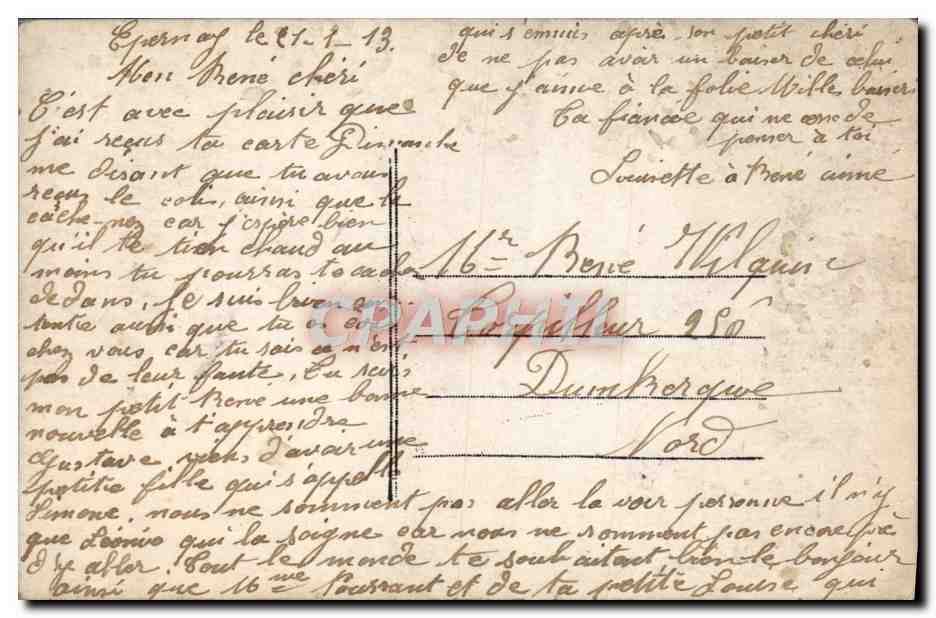 Epernay le 21-1-13
Mon René chéri
C'est avec plaisir que
j'ai reçus ta carte Dimanche
me disant que tu avais
reçus le colis, ainsi que le
cache-nez car j'espère bien
qu'il te tien chaud au
moins tu pourras te cacher
dedans, Je suis bien con
tente aussi que tu
chez vous car tu sais ce n'es
pas de leur faute, Tu sais
mon petit René une bonne
nouvelle à t'apprendre
Gustave viens d'avoir une
petitie fille qui s'appelle
Simone, nous ne somment pas aller la voir personne il n'y
que qui la soigne car nous ne somment pas encore prè
d'y aller. Tout le monde te souhaitant bien le bonjour
ainsi que Mme Poursant et de ta petite Louise qui
qui s'ennuis après son petit chéri
de ne pas avoir un baiser de celui
que j'aime à la folie Mille baisers
Ta fiancée qui ne cesse de
penser à toi
Louisette à René aimé
Mr René Vilquin
Torpilleur 250
Dumkerque
Nord
CPARPHIL